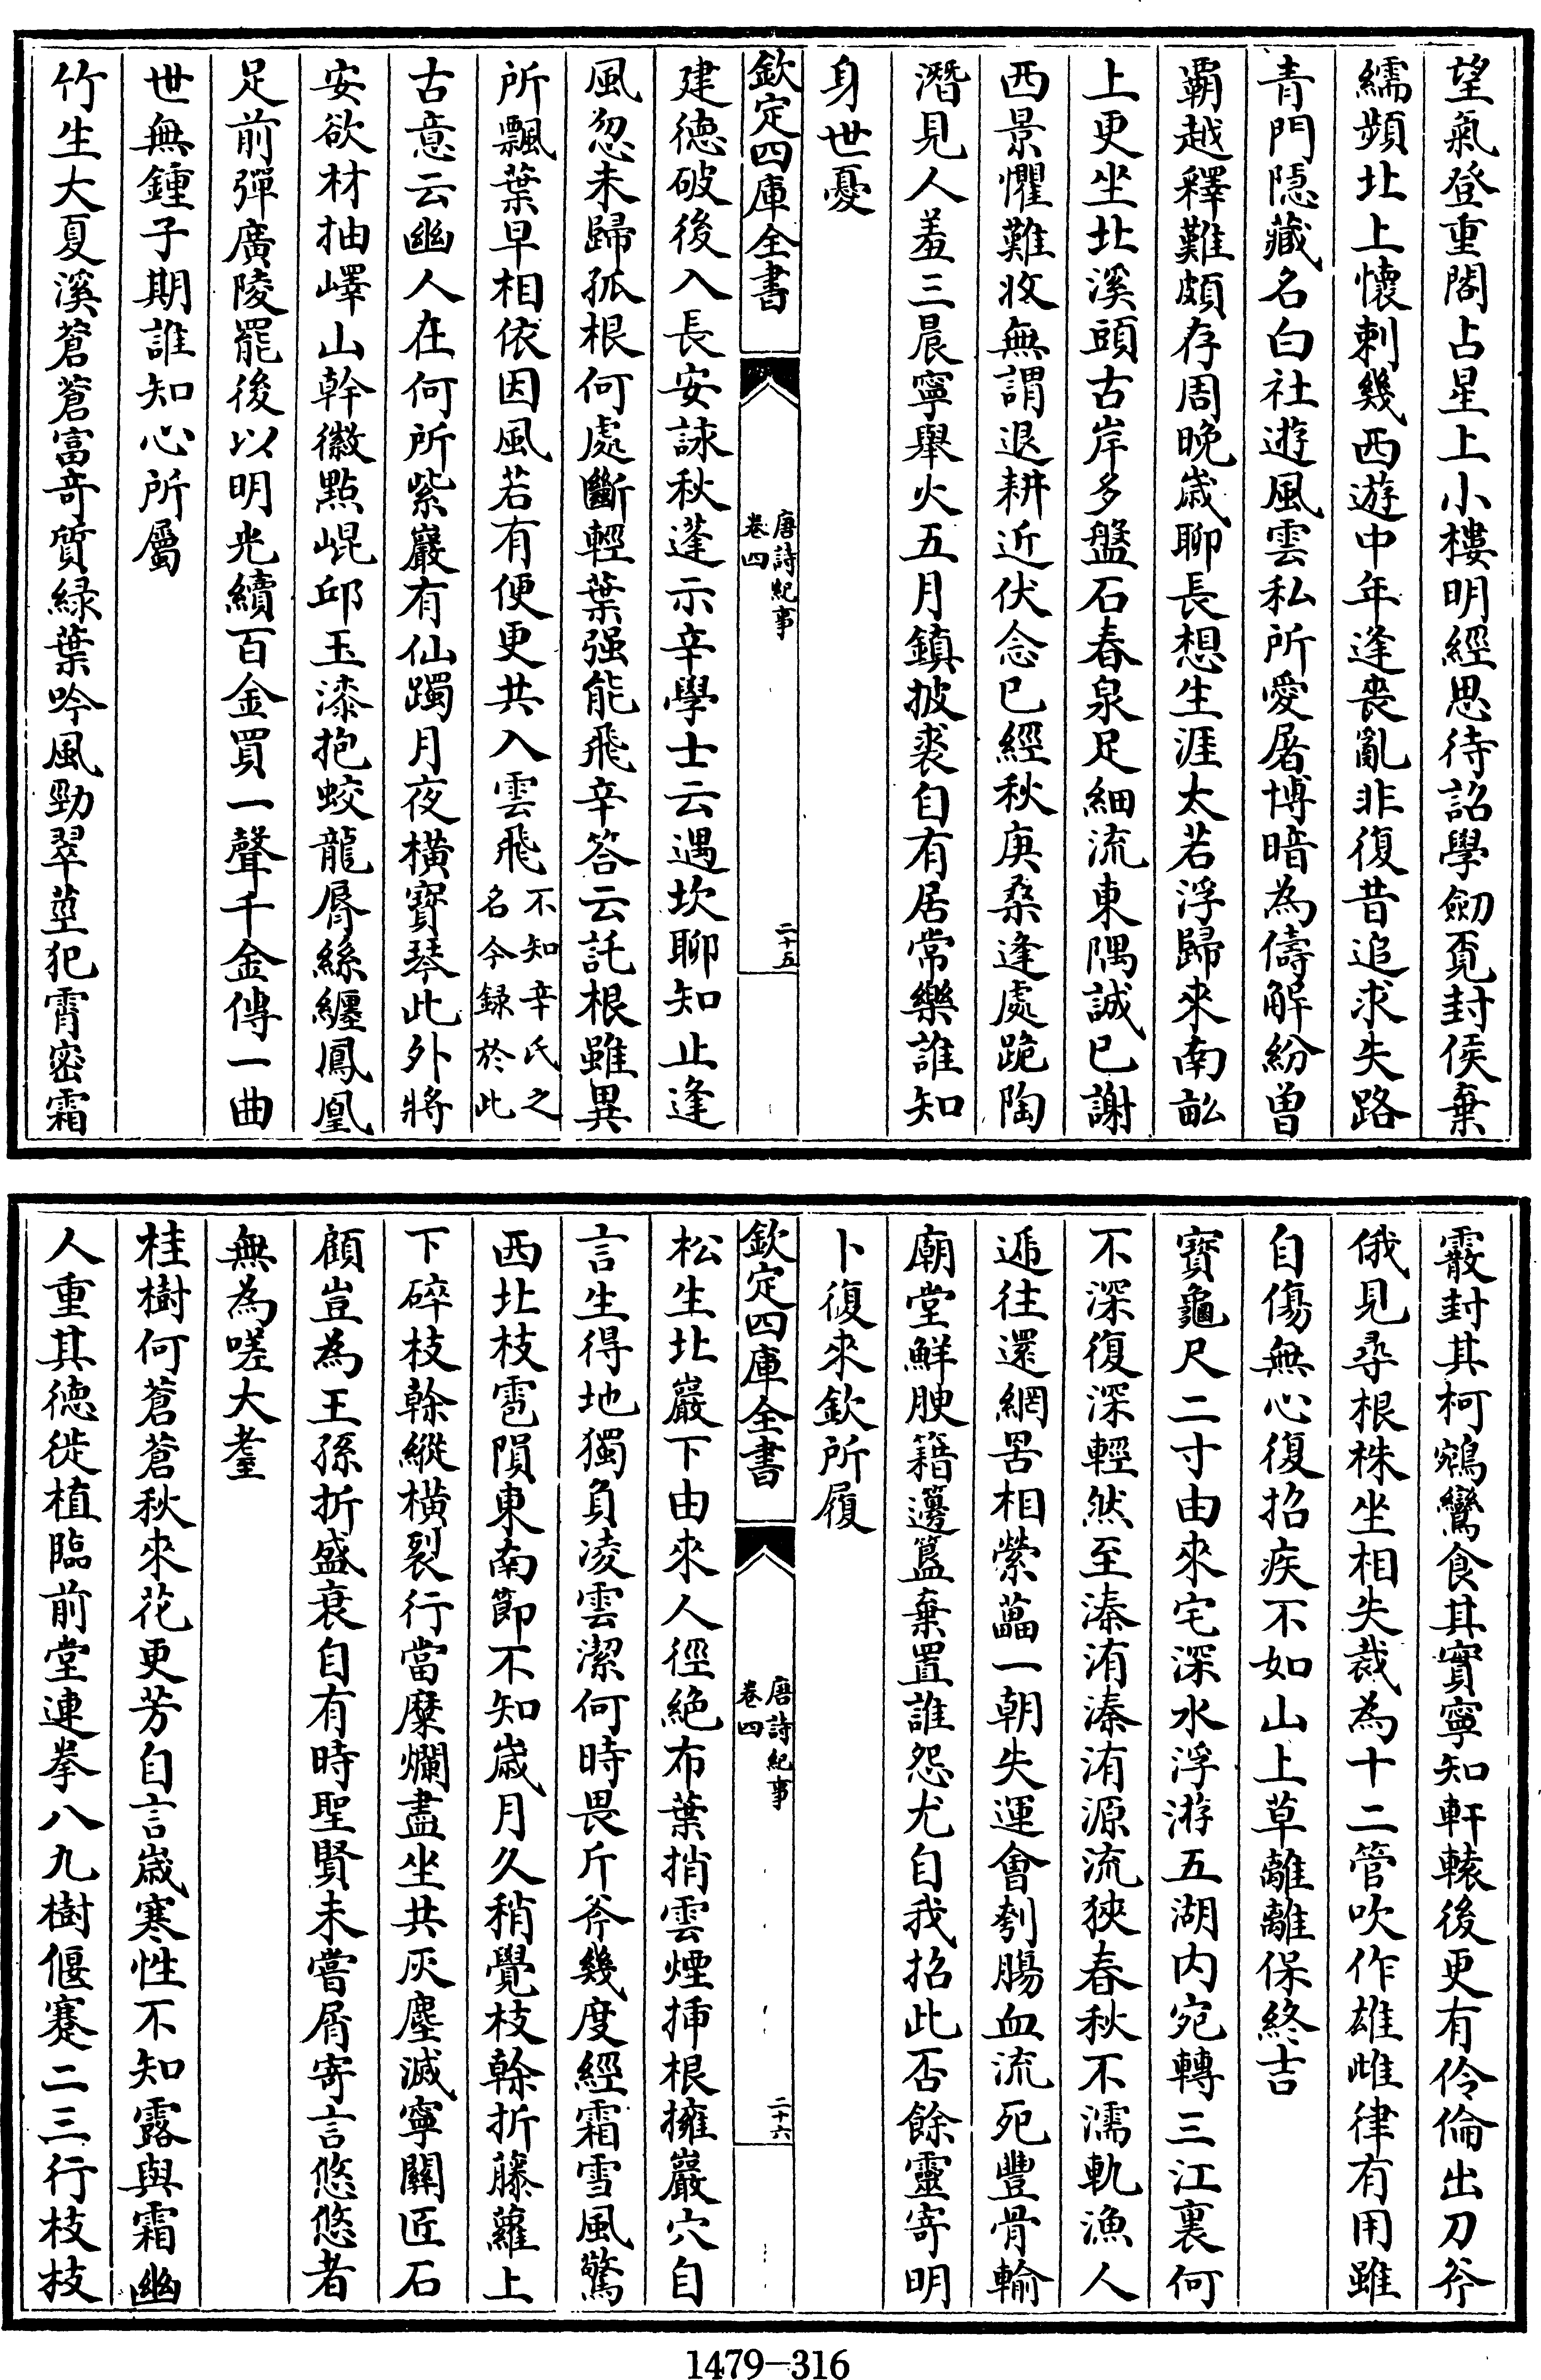 望氣登重閣占星上小樓明經思待詔學劒覔封侯棄
繻頻北上懷刺幾西遊中年逢喪亂非復昔追求失路
青門隱藏名白社遊風雲私所愛屠博暗為儔解紛曽
霸越釋難頗存周晩歲聊長想生涯太若浮歸來南畝
上更坐北溪頭古岸多盤石春泉足細流東隅誠已謝
西景懼難收無謂退耕近伏念已經秋庚桑逢處跪陶
潛見人羞三晨寧舉火五月鎮披裘自有居常樂誰知
身世憂
欽定四庫全書
唐詩紀事
卷四
二十五
建德破後入長安詠秋蓬示辛學士云遇坎聊知止逢
風忽未歸孤根何處斷輕葉强能飛辛答云託根雖異
所飄葉早相依因風若有便更共入雲飛不知辛氏之
名今録於此
古意云幽人在何所紫巖有仙躅月夜橫寳琴此外將
安欲材抽嶧山幹徽點崐邱玉漆抱蛟龍脣絲纒鳳凰
足前彈廣陵罷後以明光續百金買一聲千金傳一曲
世無鍾子期誰知心所屬
竹生大夏溪蒼蒼富竒質緑葉吟風勁翠莖犯霄密霜
霰封其柯鵷鸞食其實寧知軒轅後更有伶倫出刀斧
俄見尋根株坐相失裁為十二管吹作雄雌律有用雖
自傷無心復招疾不如山上草離離保終吉
寳龜尺二寸由來宅深水浮游五湖内宛轉三江裏何
不深復深輕然至溱洧溱洧源流狹春秋不濡軌漁人
遞往還網罟相縈藟一朝失運會刳腸血流死豐骨輸
廟堂鮮腴籍籩簋棄置誰怨尤自我招此否餘靈寄明
卜復來欽所履
欽定四庫全書
唐詩紀事
卷四
二十六
松生北巖下由來人徑絶布葉捎雲煙揷根擁巖穴自
言生得地獨負凌雲潔何時畏斤斧幾度經霜雪風驚
西北枝雹隕東南節不知歲月久稍覺枝榦折藤蘿上
下碎枝榦縱橫裂行當糜爛盡坐共灰塵滅寧闗匠石
顧豈為王孫折盛衰自有時聖賢未嘗屑寄言悠悠者
無為嗟大耋
桂樹何蒼蒼秋來花更芳自言歲寒性不知露與霜幽
人重其徳徙植臨前堂連拳八九樹偃蹇二三行枝枝
1479-316